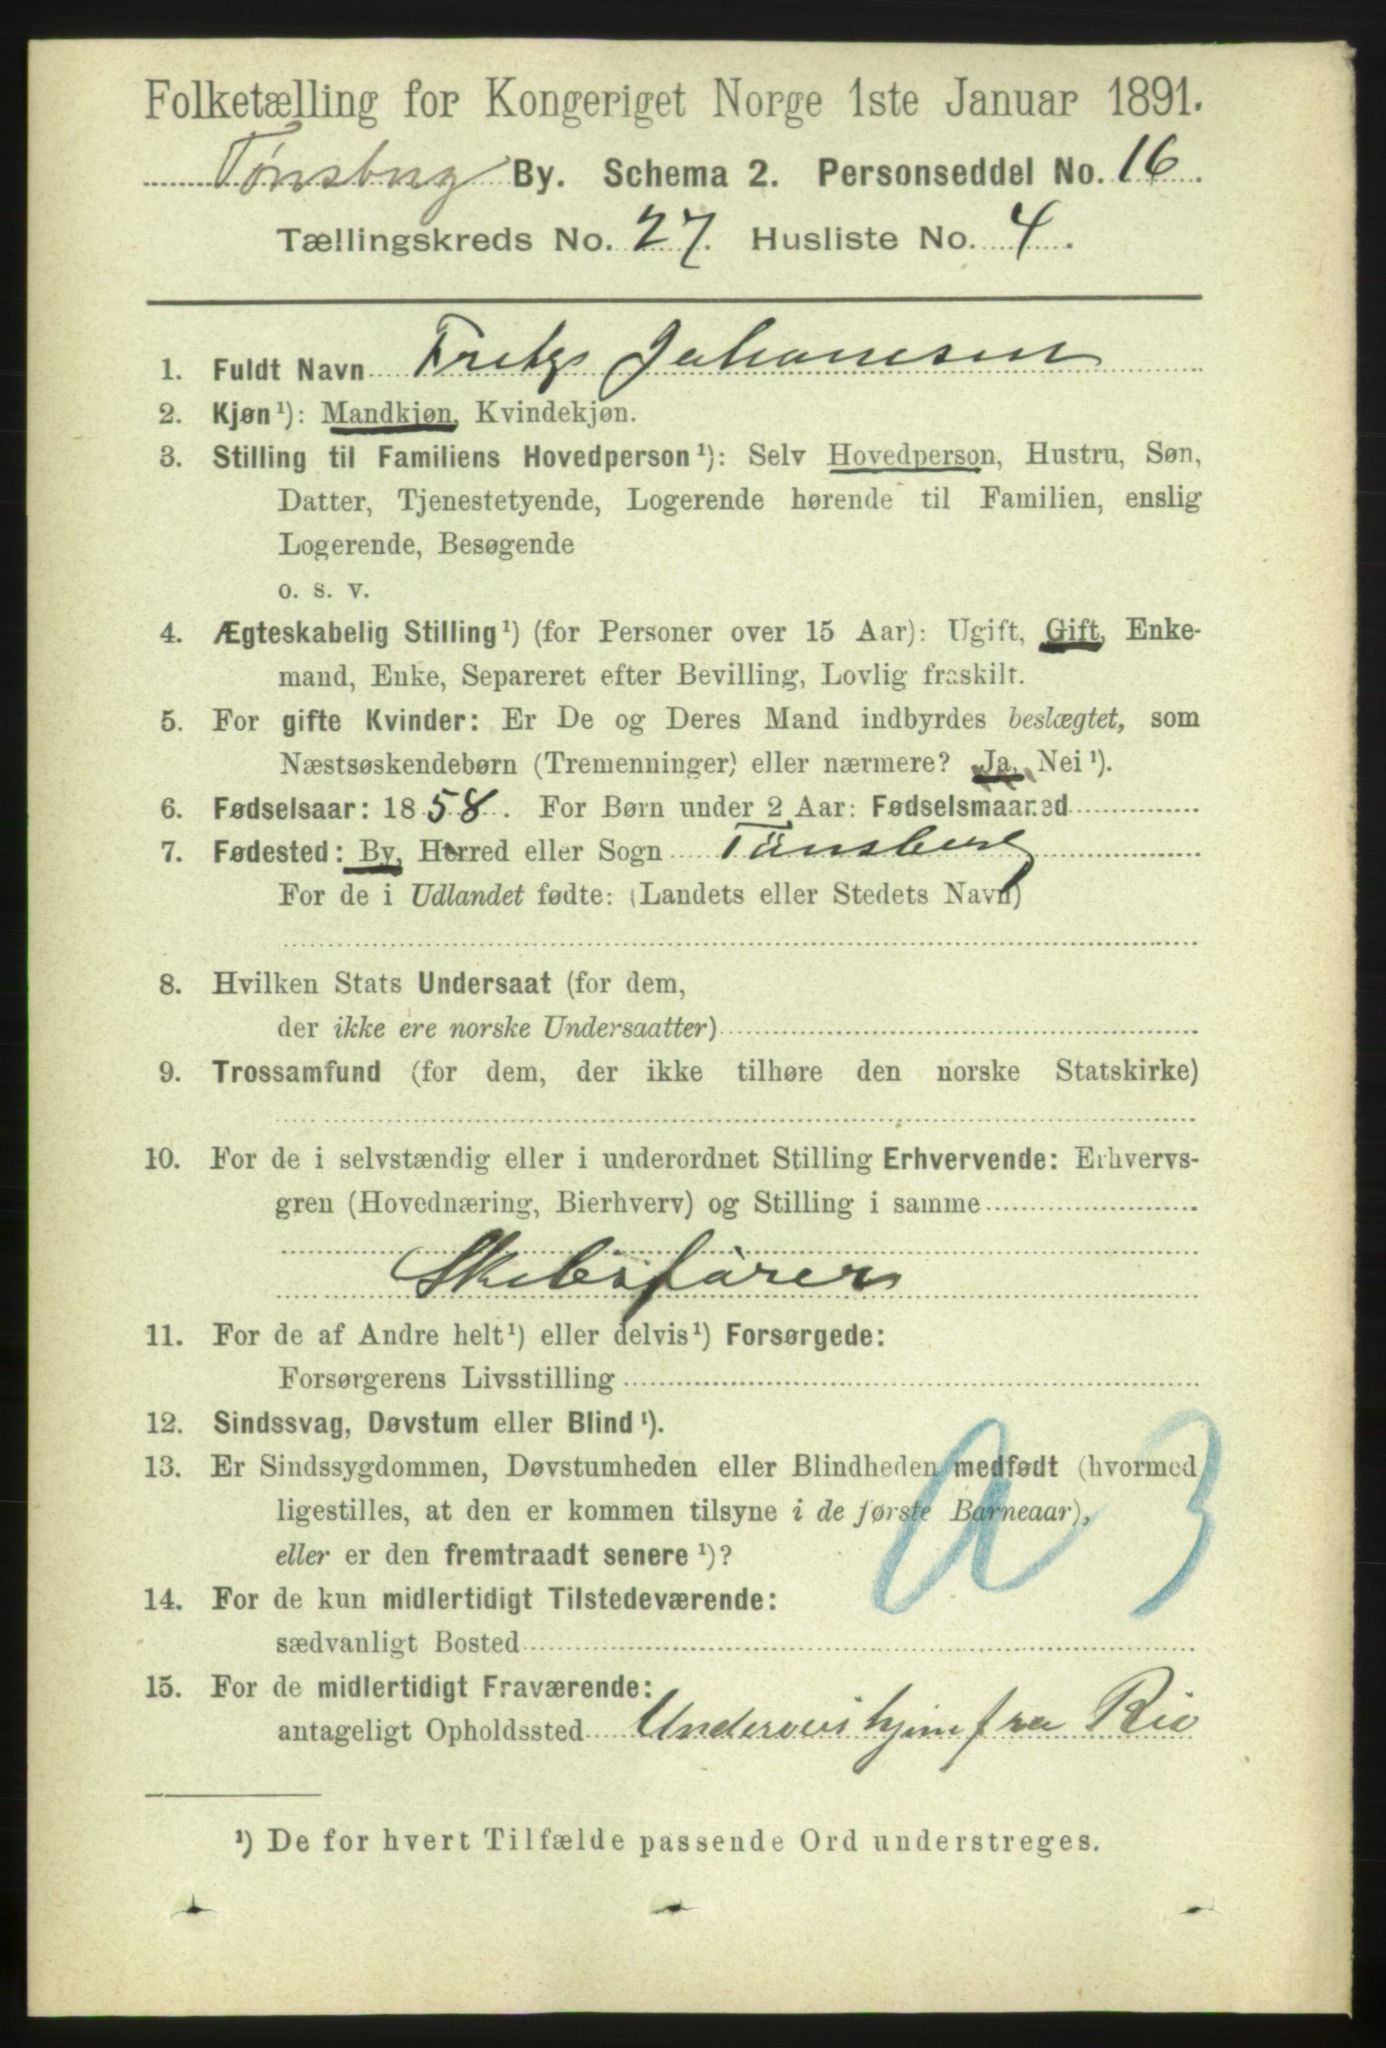 Folketælling for Kongeriget Norge 1ste Januar 1891.
Tønsberg By. Schema 2. Personseddel No. 16.
Tællingskreds No. 27. Husliste No. 4.
1. Fuldt Navn Fritz Johannesen
2. Kjøn¹): Mandkjøn, Kvindekjøn.
3. Stilling til Familiens Hovedperson¹): Selv Hovedperson, Hustru, Søn,
Datter, Tjenestetyende, Logerende hørende til Familien, enslig
Logerende, Besøgende
o. s. v.
4. Ægteskabelig Stilling¹) (for Personer over 15 Aar): Ugift, Gift, Enke-
mand, Enke, Separeret efter Bevilling, Lovlig fraskilt.
5. For gifte Kvinder: Er De og Deres Mand indbyrdes beslægtet, som
Næstsøskendebørn (Tremenninger) eller nærmere? Ja, Nei¹).
6. Fødselsaar: 1858. For Børn under 2 Aar: Fødselsmaaned
7. Fødested: By, Herred eller Sogn Tönsberg
For de i Udlandet fødte: (Landets eller Stedets Navn)
8. Hvilken Stats Undersaat (for dem,
der ikke ere norske Undersaatter)
9. Trossamfund (for dem, der ikke tilhøre den norske Statskirke)
10. For de i selvstændig eller i underordnet Stilling Erhvervende: Erhvervs-
gren (Hovednæring, Bierhverv) og Stilling i samme
Skibsförer
11. For de af Andre helt¹) eller delvis¹) Forsørgede:
Forsørgerens Livsstilling
12. Sindssvag, Døvstum eller Blind¹).
13. Er Sindssygdommen, Døvstumheden eller Blindheden medfødt (hvormed
ligestilles, at den er kommen tilsyne i de første Barneaar),
eller er den fremtraadt senere¹)?
a 3
14. For de kun midlertidigt Tilstedeværende:
sædvanligt Bosted
15. For de midlertidigt Fraværende:
antageligt Opholdssted Underveis hjem fra Rio
¹) De for hvert Tilfælde passende Ord understreges.